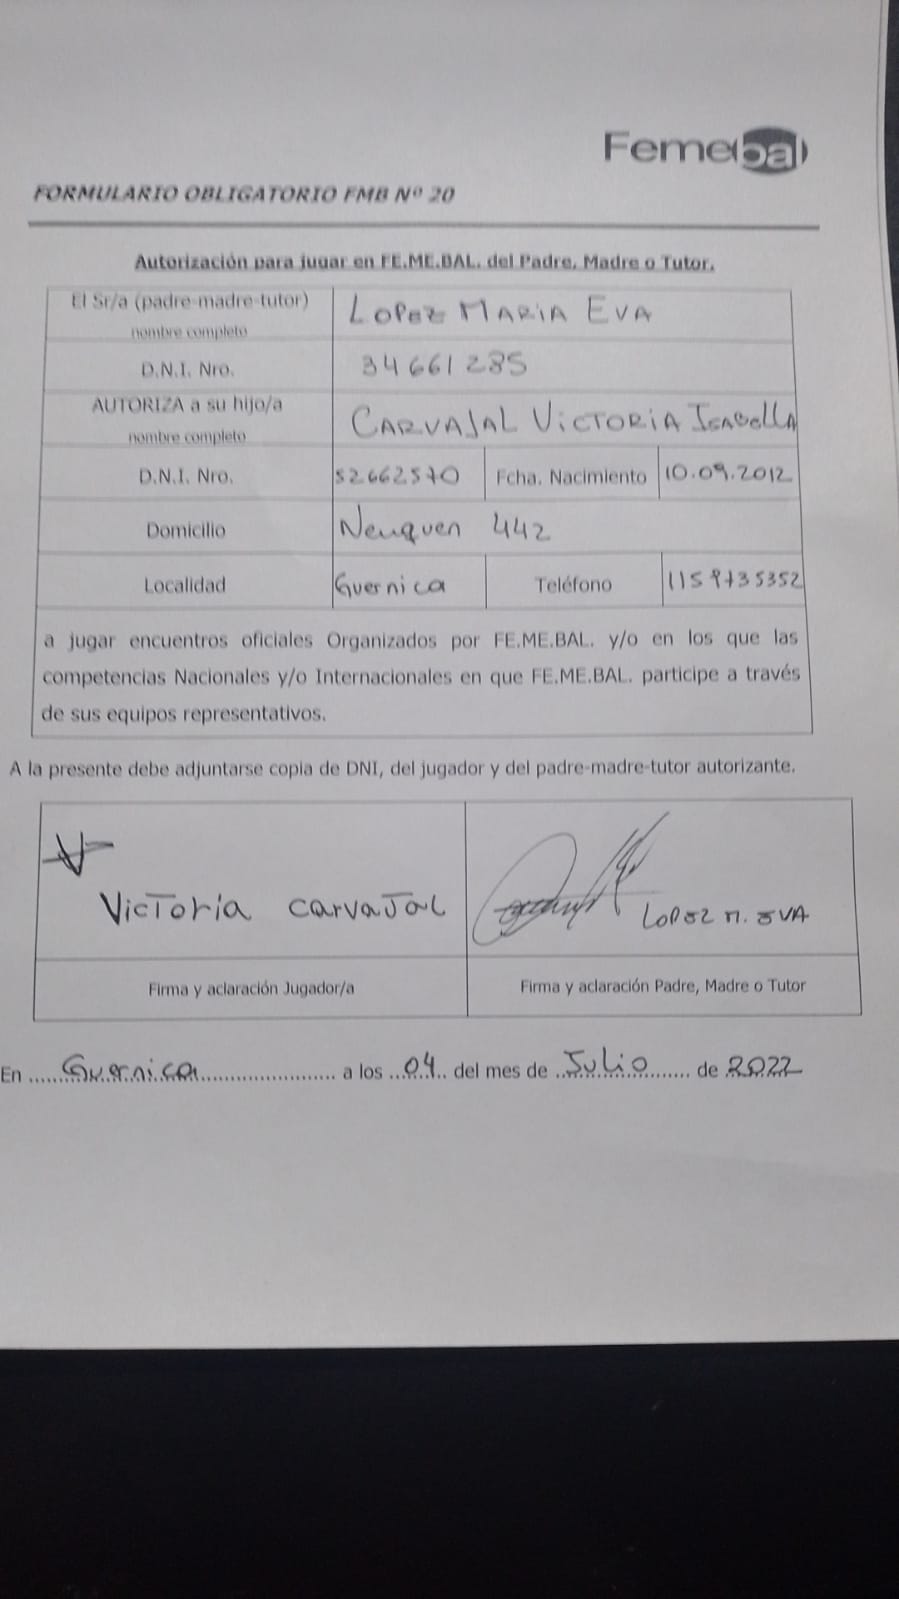 Femebal
FORMULARIO OBLIGATORIO FMB Nº 20
Autorización para jugar en FE.ME.BAL. del Padre, Madre o Tutor.
El Sr/a (padre-madre-tutor) LOPEZ MARIA EVA
nombre completo
D.N.I. Nro. 34661285
AUTORIZA a su hijo/a CARVAJAL VICTORIA ISABELLA
nombre completo
D.N.I. Nro. 52662570 Fcha. Nacimiento 10.09.2012
Domicilio Neuquen 442
Localidad Guernica Teléfono 1159735352
a jugar encuentros oficiales Organizados por FE.ME.BAL. y/o en los que las
competencias Nacionales y/o Internacionales en que FE.ME.BAL. participe a través
de sus equipos representativos.
A la presente debe adjuntarse copia de DNI, del jugador y del padre-madre-tutor autorizante.
Victoria carvaJal LOPEZ M. EVA
Firma y aclaración Jugador/a Firma y aclaración Padre, Madre o Tutor
En Guernica a los 04 del mes de Julio de 2022